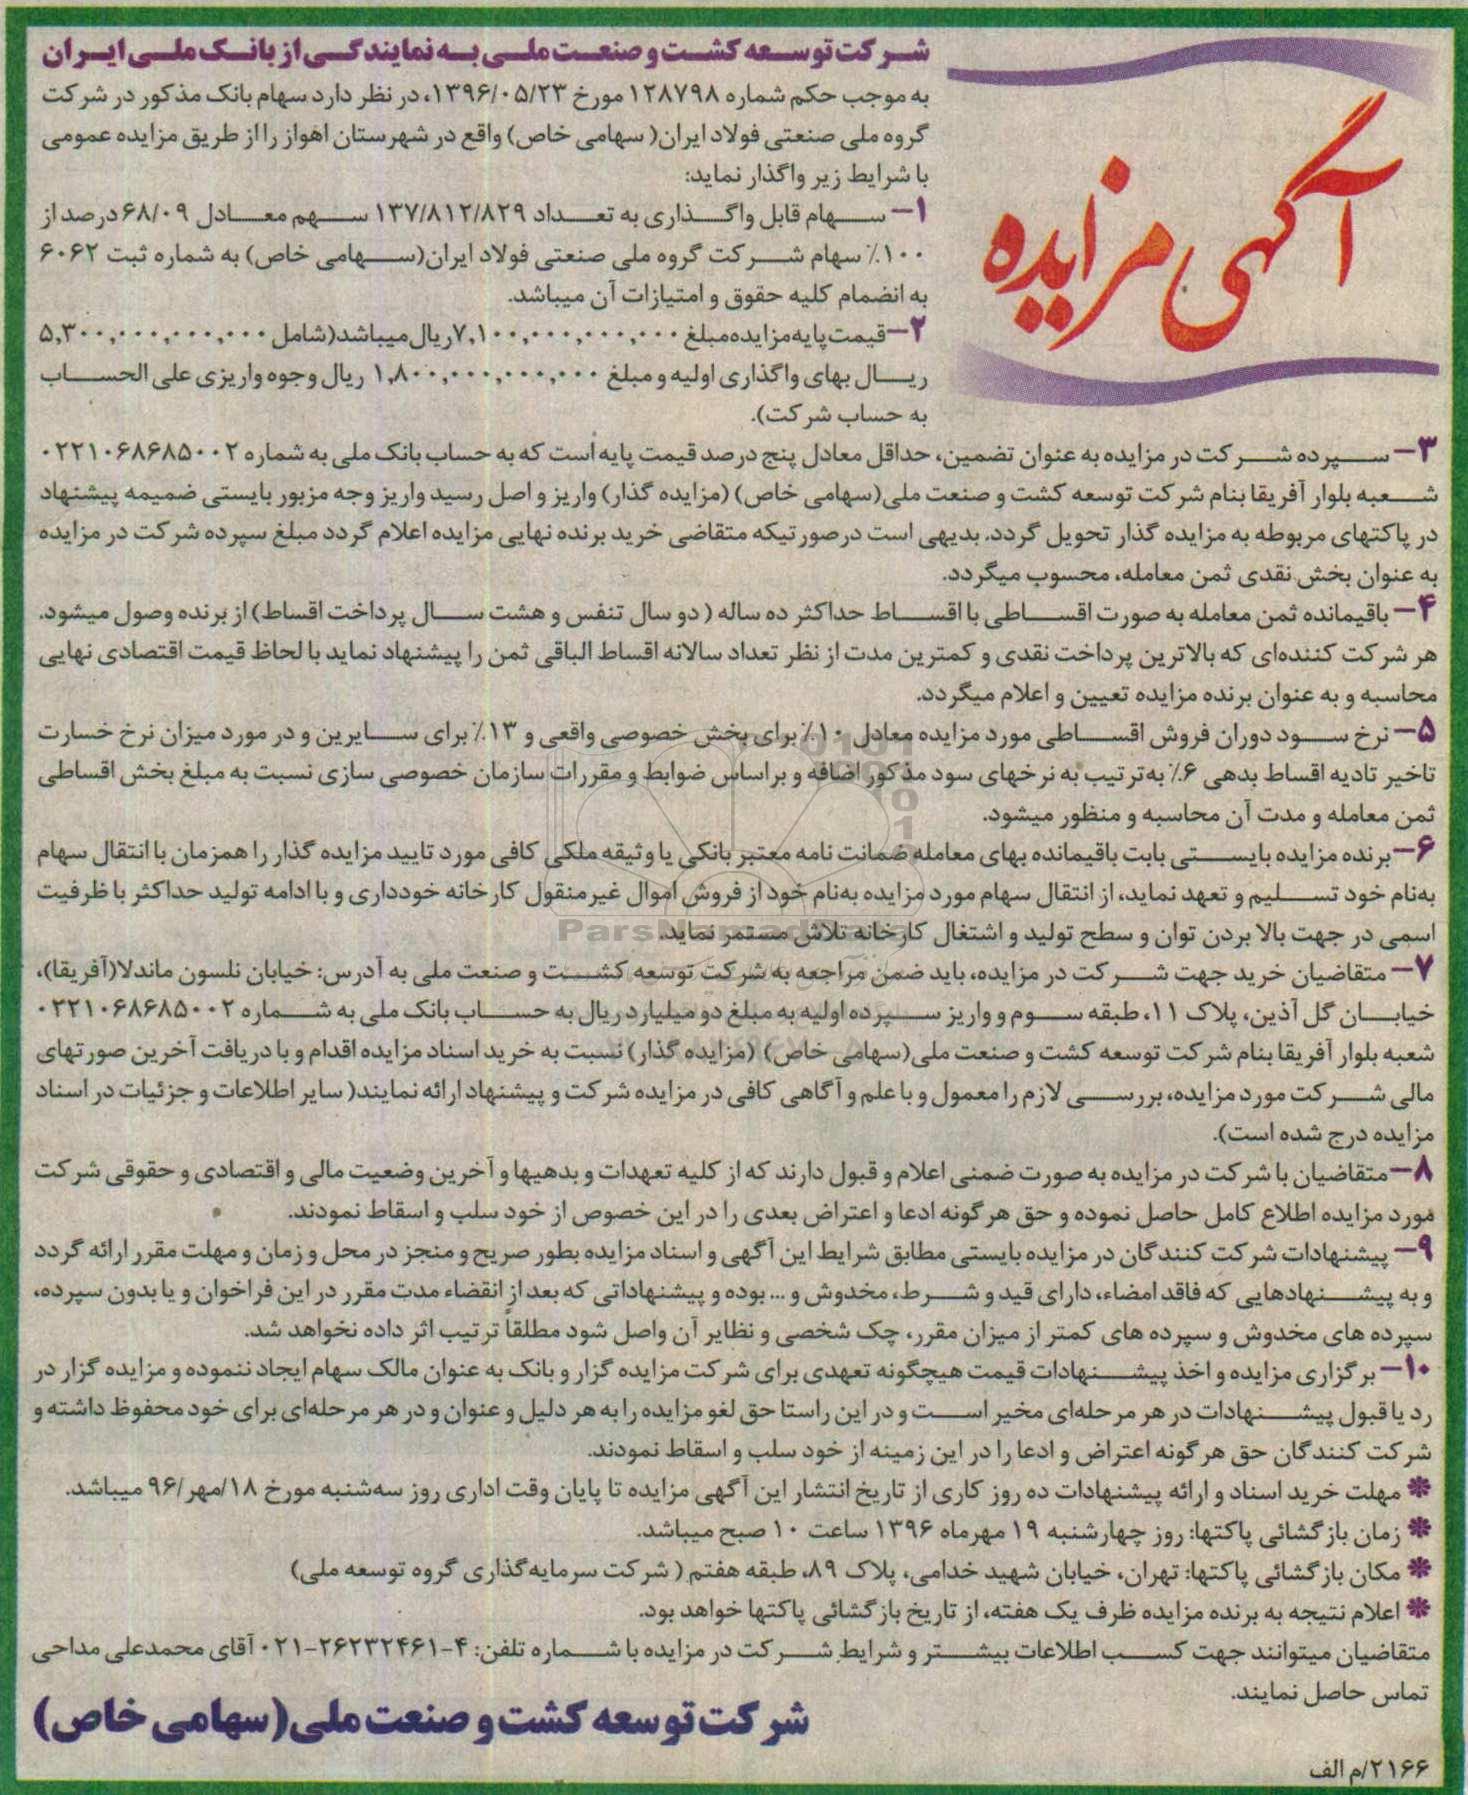 آگهی مزایده
شرکت توسعه کشت و صنعت ملی به نمایندگی از بانک ملی ایران
به موجب حکم شماره ۱۲۸۷۹۸ مورخ ۱۳۹۶/۰۵/۲۳، در نظر دارد سهام بانک مذکور در شرکت
گروه ملی صنعتی فولاد ایران( سهامی خاص) واقع در شهرستان اهواز را از طریق مزایده عمومی
با شرایط زیر واگذار نماید:
۱- سهام قابل واگذاری به تعداد ۱۳۷/۸۱۲/۸۲۹ سهم معادل ۶۸/۰۹درصد از
۱۰۰٪ سهام شرکت گروه ملی صنعتی فولاد ایران(سهامی خاص) به شماره ثبت ۶۰۶۲
به انضمام کلیه حقوق و امتیازات آن میباشد.
۲-قیمت پایه مزایده مبلغ ۷,۱۰۰,۰۰۰,۰۰۰,۰۰۰ریال میباشد(شامل ۵,۳۰۰,۰۰۰,۰۰۰,۰۰۰
ریال بهای واگذاری اولیه و مبلغ ۱,۸۰۰,۰۰۰,۰۰۰,۰۰۰ ریال وجوه واریزی علی الحساب
به حساب شرکت).
۳- سپرده شرکت در مزایده به عنوان تضمین، حداقل معادل پنج درصد قیمت پایه است که به حساب بانک ملی به شماره ۰۲۲۱۰۶۸۶۸۵۰۰۲
شعبه بلوار آفریقا بنام شرکت توسعه کشت و صنعت ملی(سهامی خاص) (مزایده گذار) واریز و اصل رسید واریز وجه مزبور بایستی ضمیمه پیشنهاد
در پاکتهای مربوطه به مزایده گذار تحویل گردد. بدیهی است درصورتیکه متقاضی خرید برنده نهایی مزایده اعلام گردد مبلغ سپرده شرکت در مزایده
به عنوان بخش نقدی ثمن معامله، محسوب میگردد.
۴- باقیمانده ثمن معامله به صورت اقساطی با اقساط حداکثر ده ساله ( دو سال تنفس و هشت سال پرداخت اقساط) از برنده وصول میشود.
هر شرکت کننده‌ای که بالاترین پرداخت نقدی و کمترین مدت از نظر تعداد سالانه اقساط الباقی ثمن را پیشنهاد نماید با لحاظ قیمت اقتصادی نهایی
محاسبه و به عنوان برنده مزایده تعیین و اعلام میگردد.
۵- نرخ سود دوران فروش اقساطی مورد مزایده معادل ۱۰٪ برای بخش خصوصی واقعی و ۱۳٪ برای سایرین و در مورد میزان نرخ خسارت
تاخیر تادیه اقساط بدهی ۶٪ به‌ترتیب به نرخهای سود مذکور اضافه و براساس ضوابط و مقررات سازمان خصوصی سازی نسبت به مبلغ بخش اقساطی
ثمن معامله و مدت آن محاسبه و منظور میشود.
۶-برنده مزایده بایستی بابت باقیمانده بهای معامله ضمانت نامه معتبر بانکی یا وثیقه ملکی کافی مورد تایید مزایده گذار را همزمان با انتقال سهام
به‌نام خود تسلیم و تعهد نماید، از انتقال سهام مورد مزایده به‌نام خود از فروش اموال غیرمنقول کارخانه خودداری و با ادامه تولید حداکثر با ظرفیت
اسمی در جهت بالا بردن توان و سطح تولید و اشتغال کارخانه تلاش مستمر نماید.
۷- متقاضیان خرید جهت شرکت در مزایده، باید ضمن مراجعه به شرکت توسعه کشت و صنعت ملی به آدرس: خیابان نلسون ماندلا(آفریقا)،
خیابان گل آذین، پلاک ۱۱، طبقه سوم و واریز سپرده اولیه به مبلغ دو میلیارد ریال به حساب بانک ملی به شماره ۰۲۲۱۰۶۸۶۸۵۰۰۲
شعبه بلوار آفریقا بنام شرکت توسعه کشت و صنعت ملی(سهامی خاص) (مزایده گذار) نسبت به خرید اسناد مزایده اقدام و با دریافت آخرین صورتهای
مالی شرکت مورد مزایده، بررسی لازم را معمول و با علم و آگاهی کافی در مزایده شرکت و پیشنهاد ارائه نمایند( سایر اطلاعات و جزئیات در اسناد
مزایده درج شده است).
۸-متقاضیان با شرکت در مزایده به صورت ضمنی اعلام و قبول دارند که از کلیه تعهدات و بدهیها و آخرین وضعیت مالی و اقتصادی و حقوقی شرکت
مورد مزایده اطلاع کامل حاصل نموده و حق هرگونه ادعا و اعتراض بعدی را در این خصوص از خود سلب و اسقاط نمودند.
۹- پیشنهادات شرکت کنندگان در مزایده بایستی مطابق شرایط این آگهی و اسناد مزایده بطور صریح و منجز در محل و زمان و مهلت مقرر ارائه گردد
و به پیشنهادهایی که فاقد امضاء، دارای قید و شرط، مخدوش و ... بوده و پیشنهاداتی که بعد از انقضاء مدت مقرر در این فراخوان و یا بدون سپرده،
سپرده های مخدوش و سپرده های کمتر از میزان مقرر، چک شخصی و نظایر آن واصل شود مطلقاً ترتیب اثر داده نخواهد شد.
۱۰- برگزاری مزایده و اخذ پیشنهادات قیمت هیچگونه تعهدی برای شرکت مزایده گزار و بانک به عنوان مالک سهام ایجاد ننموده و مزایده گزار در
رد یا قبول پیشنهادات در هر مرحله‌ای مخیر است و در این راستا حق لغو مزایده را به هر دلیل و عنوان و در هر مرحله‌ای برای خود محفوظ داشته و
شرکت کنندگان حق هرگونه اعتراض و ادعا را در این زمینه از خود سلب و اسقاط نمودند.
* مهلت خرید اسناد و ارائه پیشنهادات ده روز کاری از تاریخ انتشار این آگهی مزایده تا پایان وقت اداری روز سه‌شنبه مورخ ۱۸/مهر/۹۶ میباشد.
* زمان بازگشائی پاکتها: روز چهارشنبه ۱۹ مهرماه ۱۳۹۶ ساعت ۱۰ صبح میباشد.
* مکان بازگشائی پاکتها: تهران، خیابان شهید خدامی، پلاک ۸۹، طبقه هفتم ( شرکت سرمایه‌گذاری گروه توسعه ملی)
* اعلام نتیجه به برنده مزایده ظرف یک هفته، از تاریخ بازگشائی پاکتها خواهد بود.
متقاضیان میتوانند جهت کسب اطلاعات بیشتر و شرایط شرکت در مزایده با شماره تلفن: ۴-۲۶۲۳۲۴۶۱-۰۲۱ آقای محمدعلی مداحی
تماس حاصل نمایند.
شرکت توسعه کشت و صنعت ملی(سهامی خاص)
۲۱۶۶/م الف